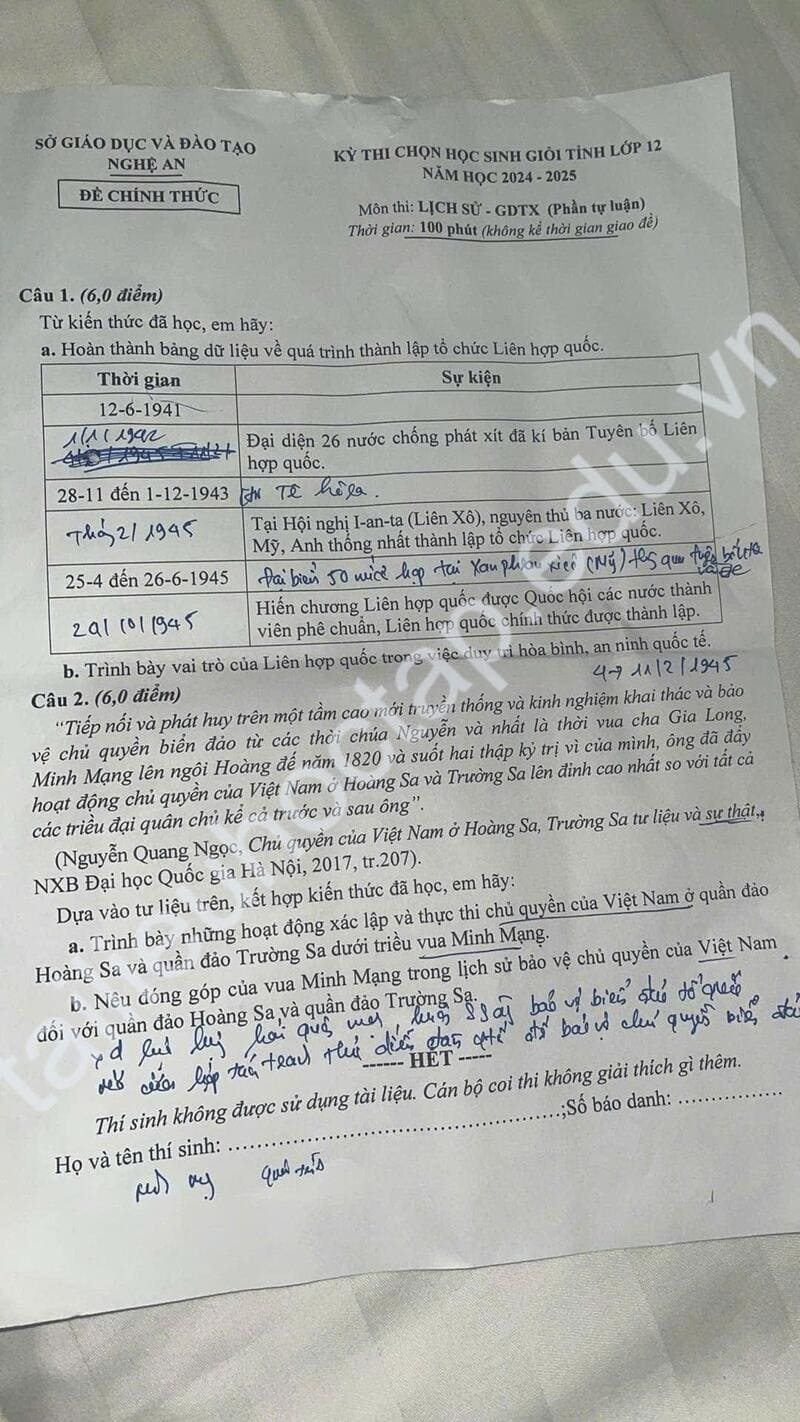 SỞ GIÁO DỤC VÀ ĐÀO TẠO
NGHỆ AN
ĐỀ CHÍNH THỨC
KỲ THI CHỌN HỌC SINH GIỎI TỈNH LỚP 12
NĂM HỌC 2024 - 2025
Môn thi: LỊCH SỬ - GDTX (Phần tự luận)
Thời gian: 100 phút (không kể thời gian giao đề)
Câu 1. (6,0 điểm)
Từ kiến thức đã học, em hãy:
a. Hoàn thành bảng dữ liệu về quá trình thành lập tổ chức Liên hợp quốc.
Thời gian Sự kiện
12-6-1941
1/1/1942 Đại diện 26 nước chống phát xít đã kí bản Tuyên bố Liên
hợp quốc.
28-11 đến 1-12-1943 Tê hê ra.
Tháng 2/1945 Tại Hội nghị I-an-ta (Liên Xô), nguyên thủ ba nước: Liên Xô,
Mỹ, Anh thống nhất thành lập tổ chức Liên hợp quốc.
25-4 đến 26-6-1945 Đại biểu 50 nước họp tại Xan (Mỹ) qua
Hiến chương Liên hợp quốc được Quốc hội các nước thành
viên phê chuẩn, Liên hợp quốc chính thức được thành lập.
b. Trình bày vai trò của Liên hợp quốc trong việc duy trì hòa bình, an ninh quốc tế.
4 → 11/2/1945
Câu 2. (6,0 điểm)
“Tiếp nối và phát huy trên một tầm cao mới truyền thống và kinh nghiệm khai thác và bảo
vệ chủ quyền biển đảo từ các thời chúa Nguyễn và nhất là thời vua cha Gia Long,
Minh Mạng lên ngôi Hoàng đế năm 1820 và suốt hai thập kỷ trị vì của mình, ông đã đẩy
hoạt động chủ quyền của Việt Nam ở Hoàng Sa và Trường Sa lên đỉnh cao nhất so với tất cả
các triều đại quân chủ kể cả trước và sau ông”.
(Nguyễn Quang Ngọc, Chủ quyền của Việt Nam ở Hoàng Sa, Trường Sa tư liệu và sự thật,
NXB Đại học Quốc gia Hà Nội, 2017, tr.207).
Dựa vào tư liệu trên, kết hợp kiến thức đã học, em hãy:
a. Trình bày những hoạt động xác lập và thực thi chủ quyền của Việt Nam ở quần đảo
Hoàng Sa và quần đảo Trường Sa dưới triều vua Minh Mạng.
b. Nêu đóng góp của vua Minh Mạng trong lịch sử bảo vệ chủ quyền của Việt Nam
đối với quần đảo Hoàng Sa và quần đảo Trường Sa.
bảo vệ biển
bảo vệ chủ quyền biển
------ HẾT -----
Thí sinh không được sử dụng tài liệu. Cán bộ coi thi không giải thích gì thêm.
Họ và tên thí sinh: ..........;Số báo danh: ..........